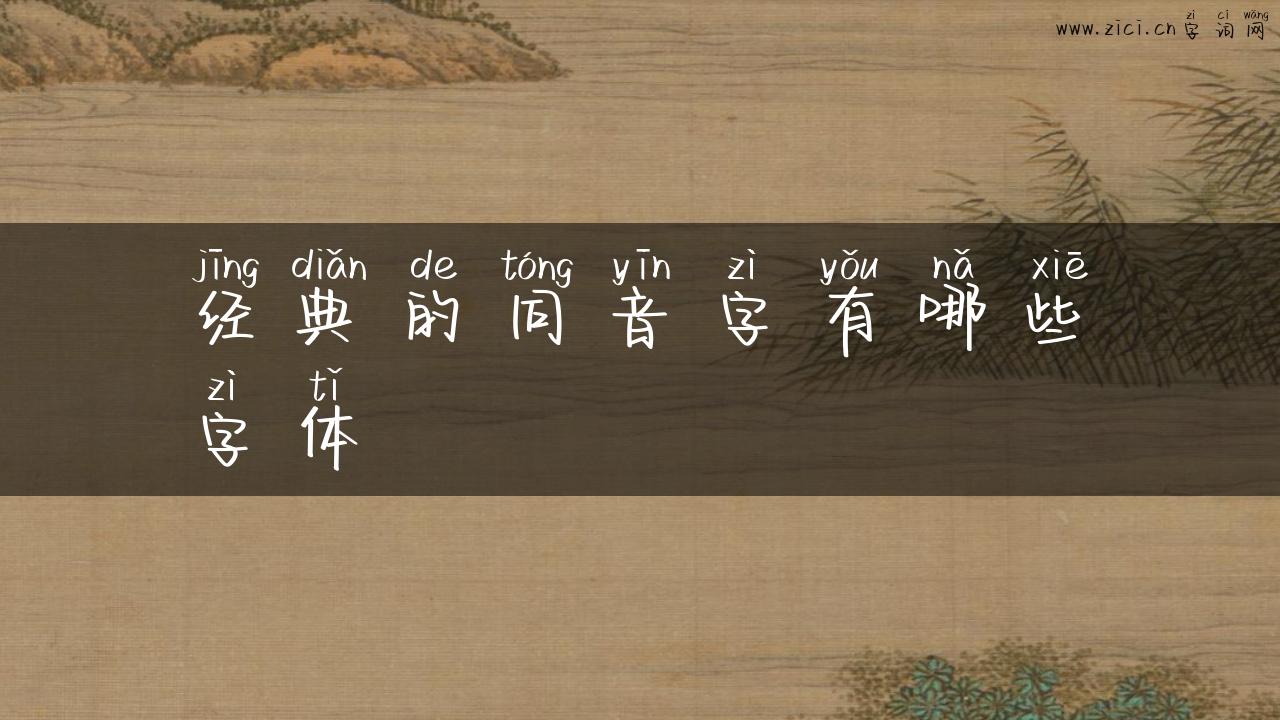 zì cí wǎng
www.zici.cn字词网
jīng diǎn de tóng yīn zì yǒu nǎ xiē
经典的同音字有哪些
zì tǐ
字体